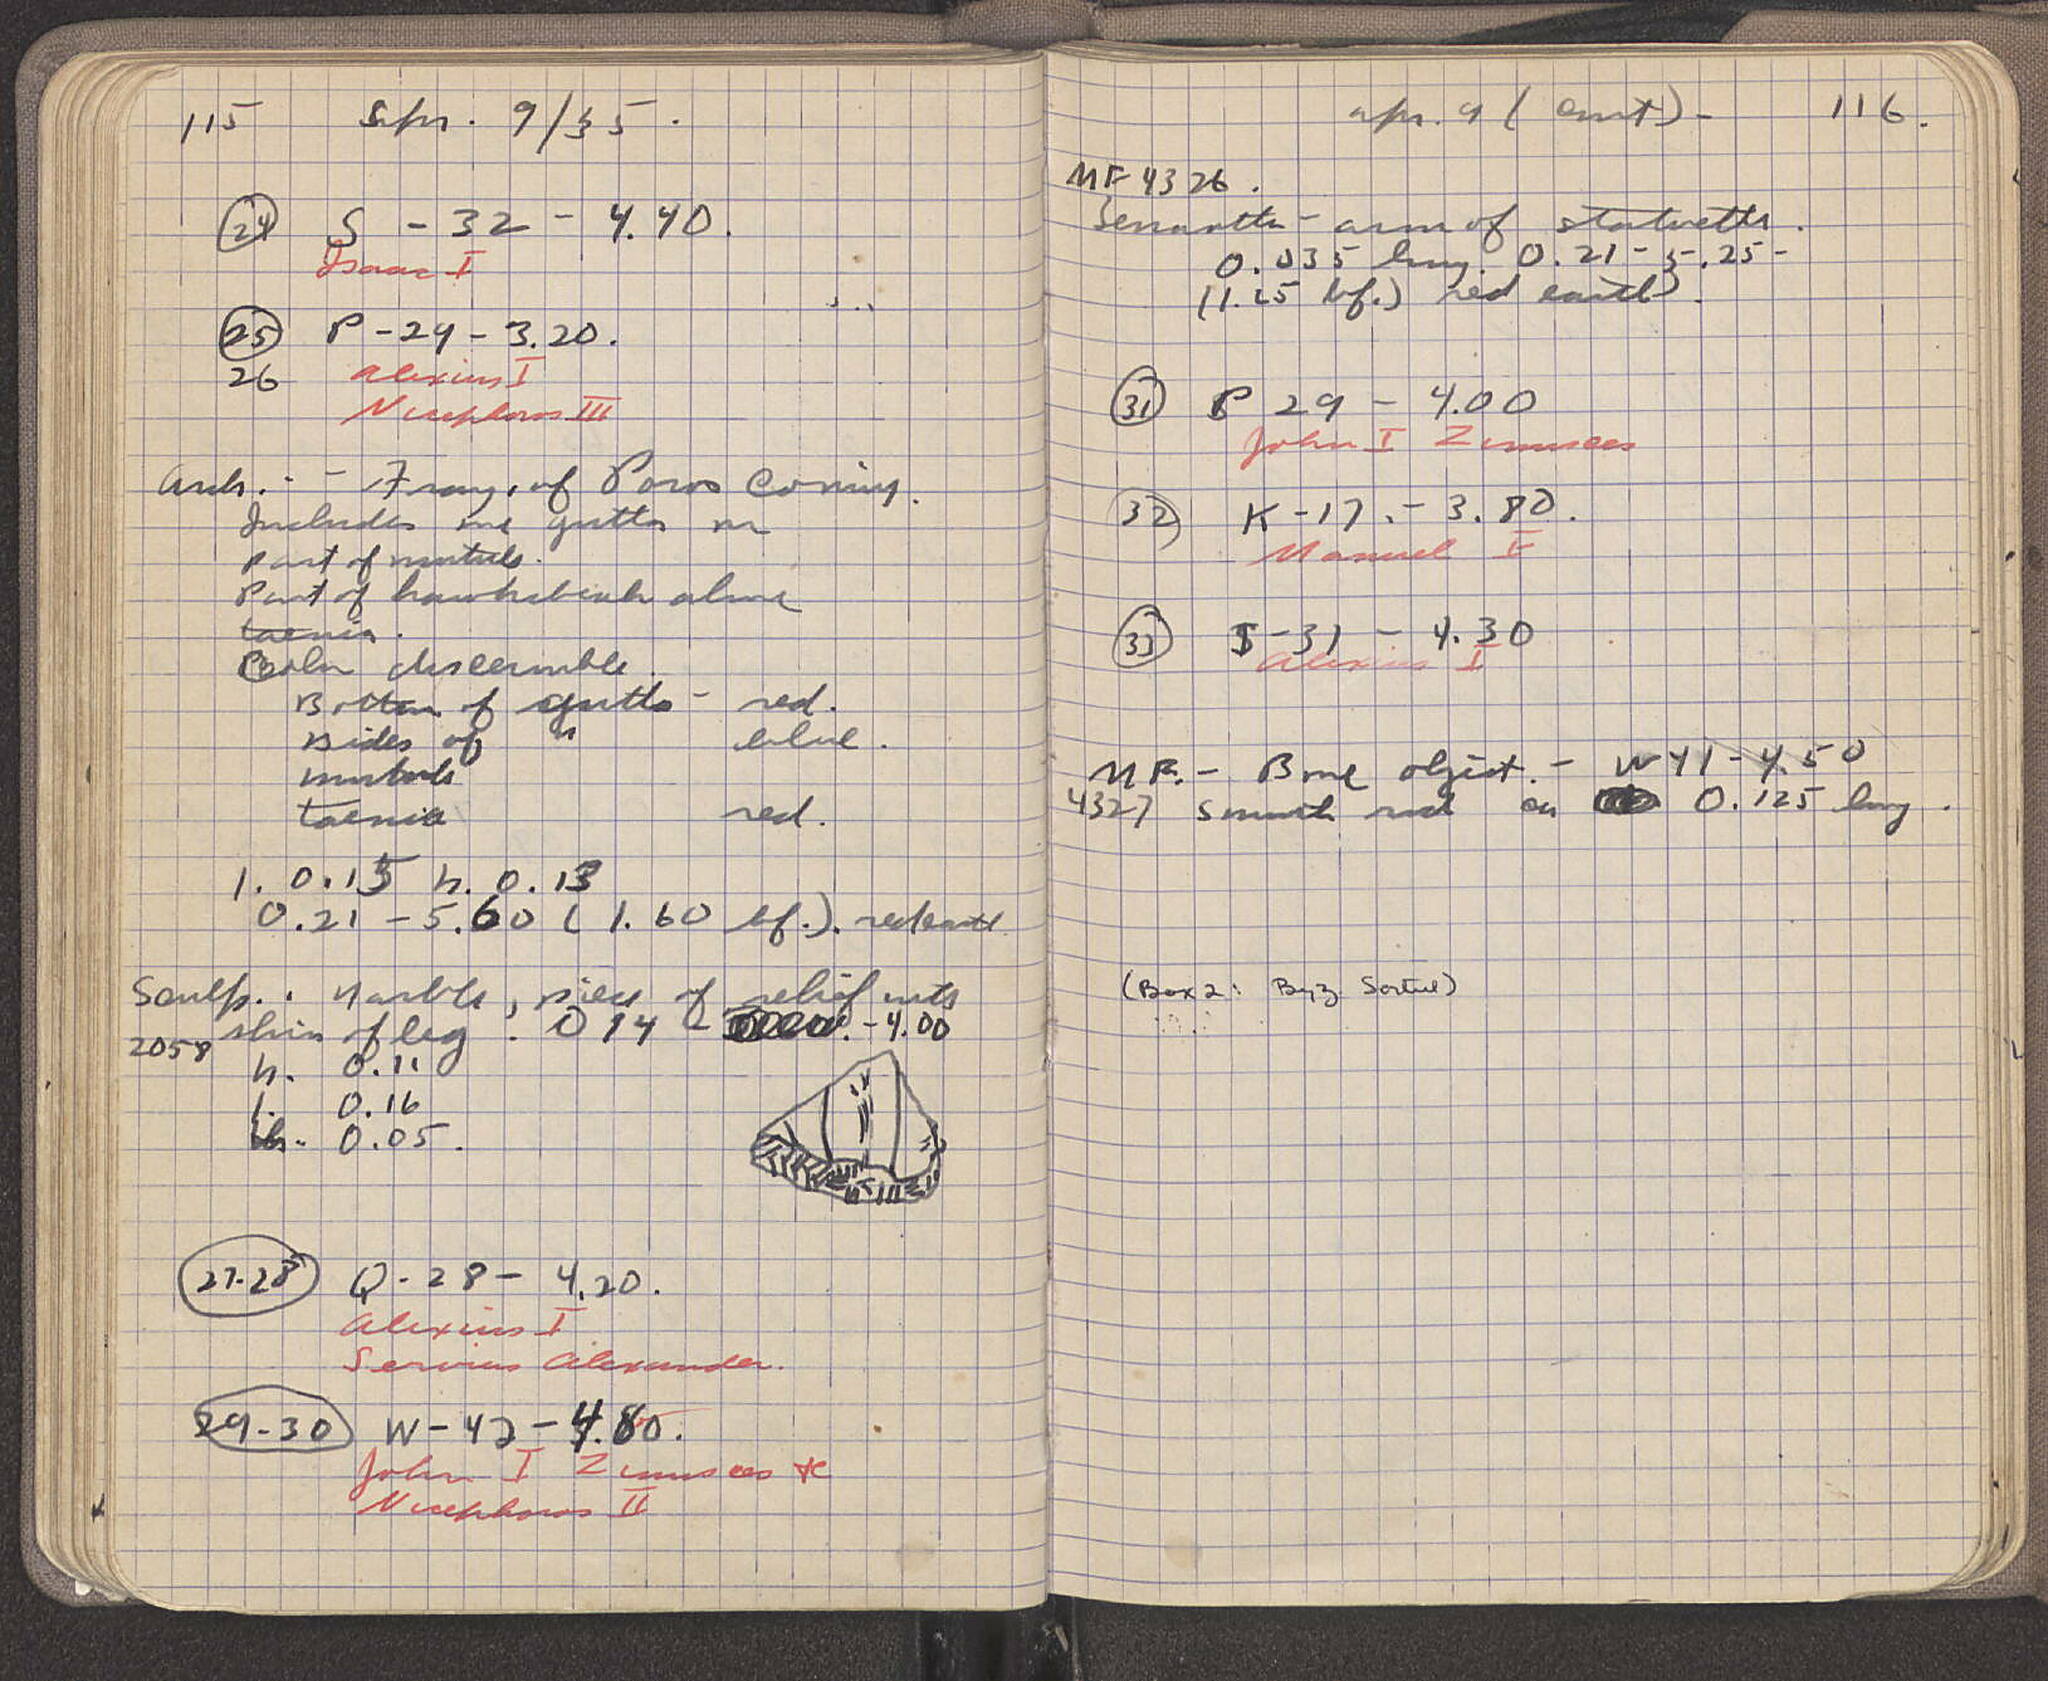 115 Apr. 9/35.
24 S - 32 - 4.40.
Isaac I
25 P - 29 - 3.20.
26 Alexius I
Nicephoros III
Arch. - Frag. of Poros Cornice.
Includes one gutta on
part of mutule.
Part of hawksbeak above
taenia.
Color discernible
Bottom of gutta - red.
Sides of " blue.
mutule
taenia red.
l. 0.15 h. 0.13
0.21 - 5.60 (1.60 bf.). red earth
Sculp. Marble, piece of relief with
shin of leg. O 14 - 4.00
2058
h. 0.11
l. 0.16
th. 0.05.
27-28 Q - 28 - 4.20.
Alexius I
Servius Alexander.
29-30 W - 42 - 4.80.
John I Zimisces
Nicephoros II
Apr. 9 (cont) - 116.
MF 4326.
Terracotta - arm of statuette.
0.035 long. 0.21 - 5.25 -
(1.25 bf.) red earth.
31 P 29 - 4.00
John I Zimisces
32 K - 17. - 3.80.
Manuel I
33 S - 31 - 4.30
Alexius I
MF. - Bone object. - W 41 - 4.50
4327 Smooth rod 0.125 long.
(Box 2: Byz.